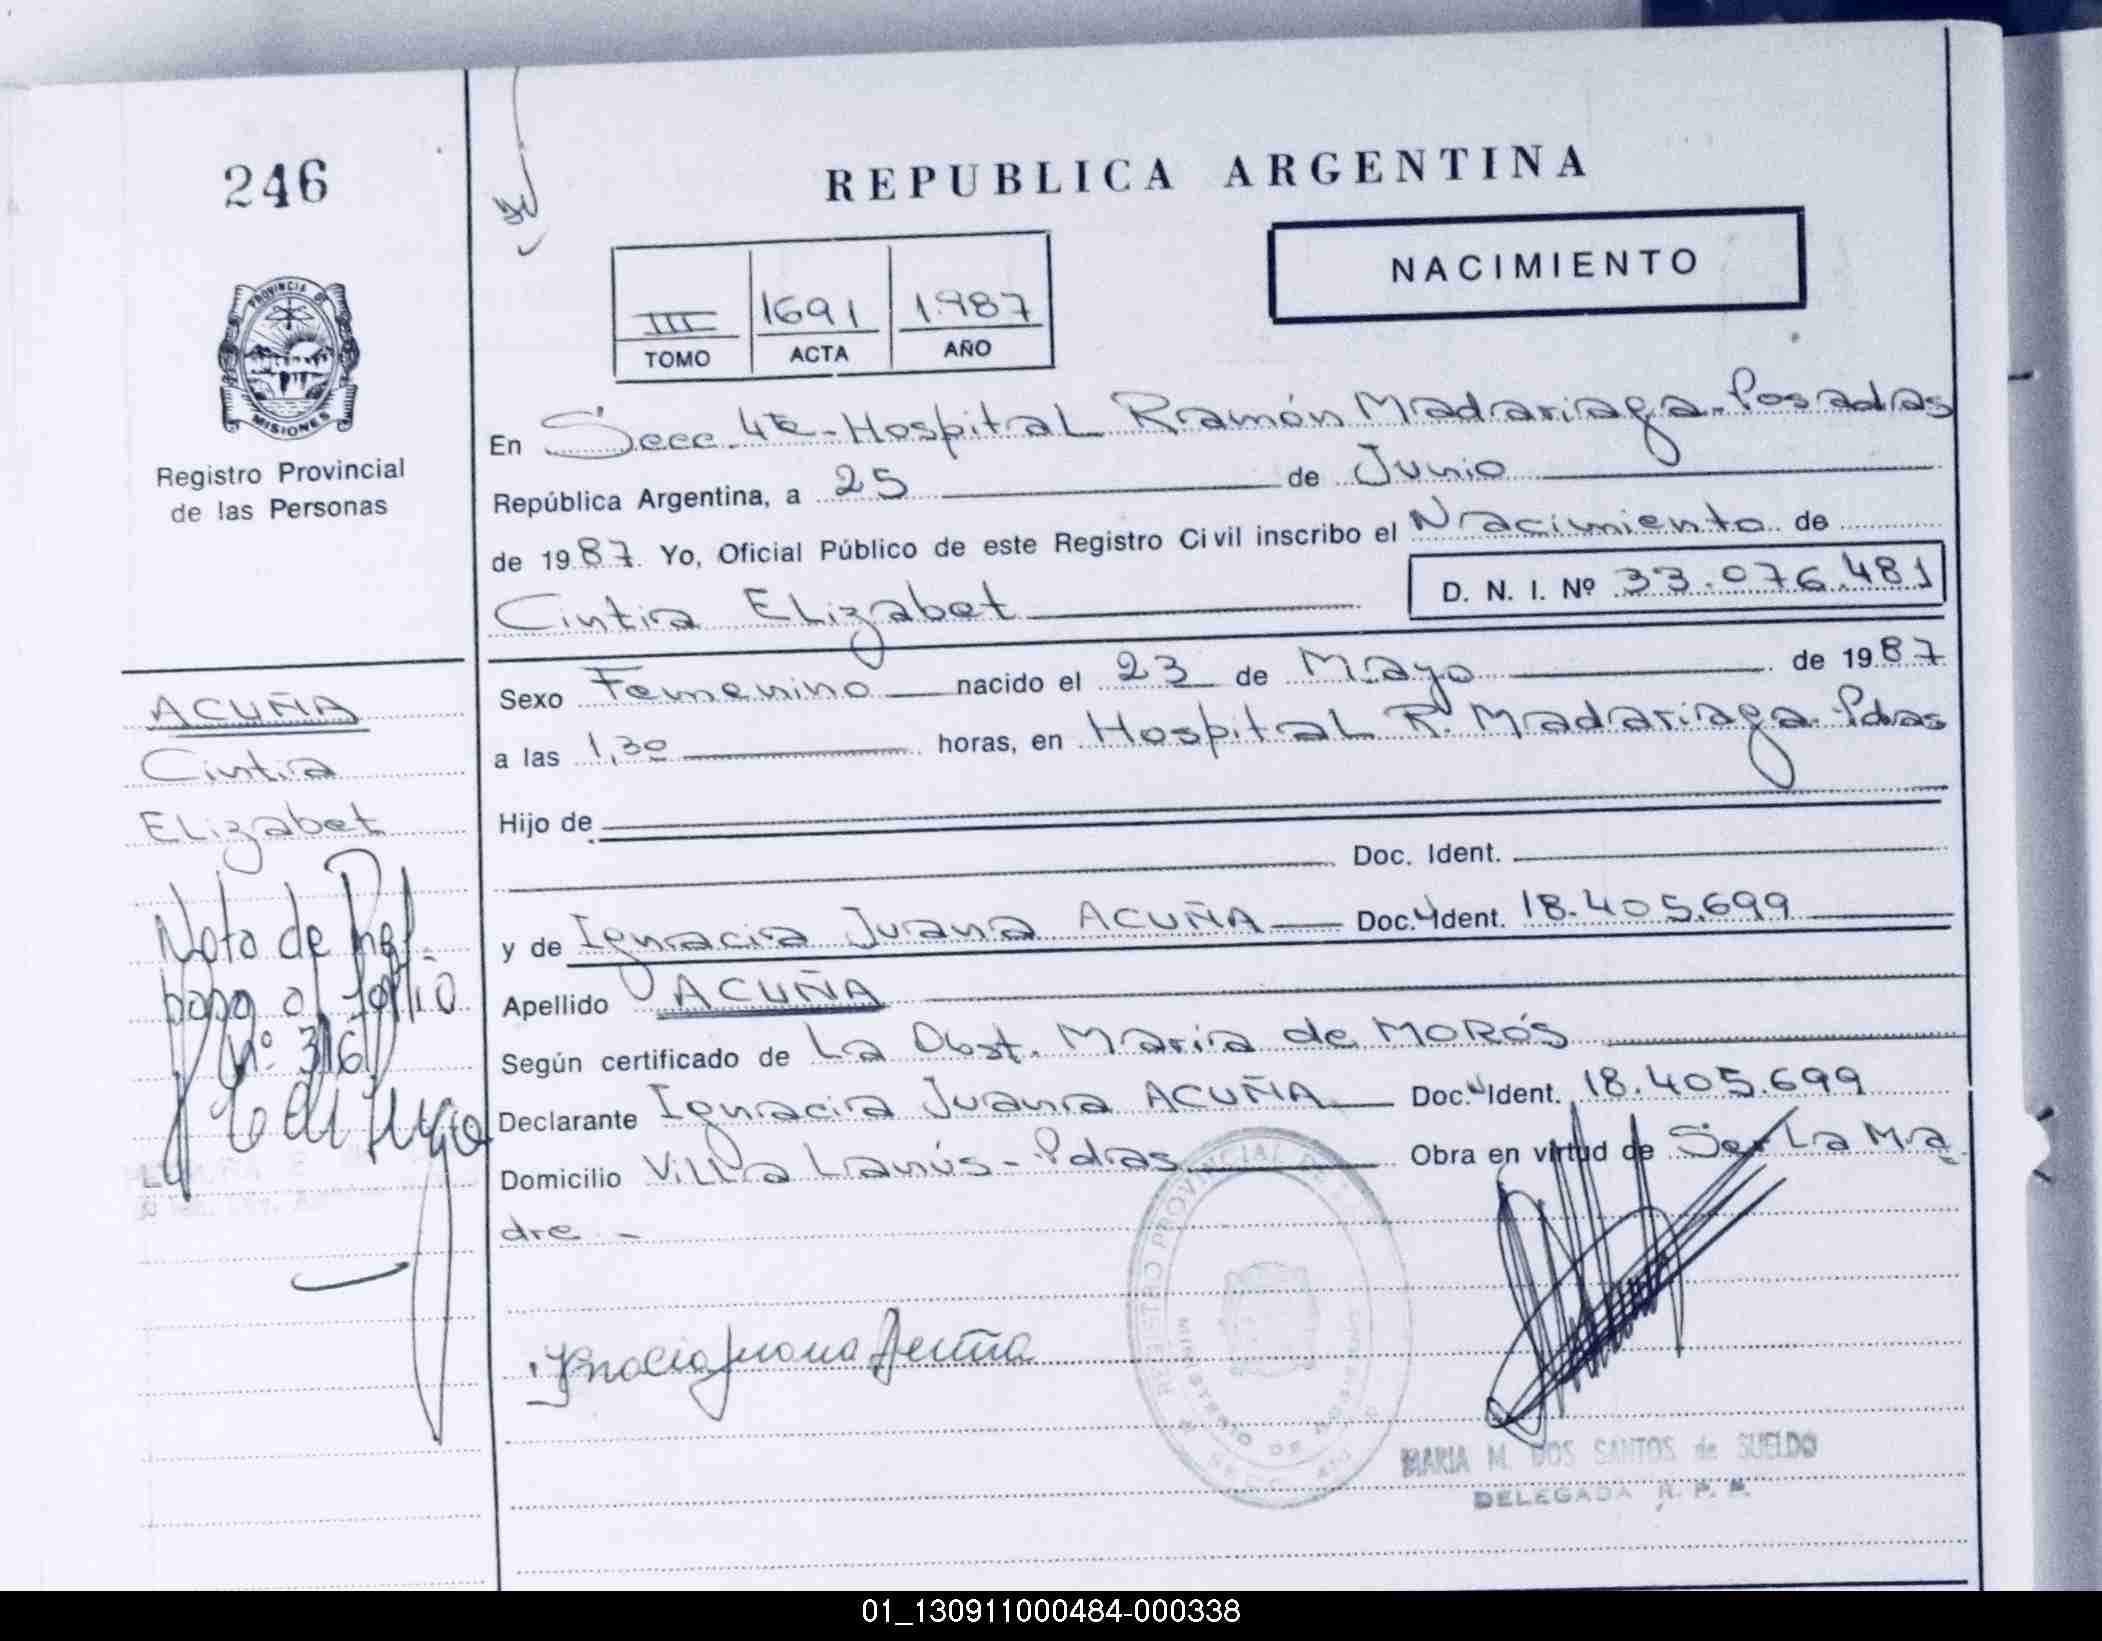 246
REPUBLICA ARGENTINA
NACIMIENTO
III 1691 1.987
TOMO ACTA AÑO
PROVINCIA DE
MISIONES
Registro Provincial
de las Personas
En Secc. 4ta - Hospital Ramón Madariaga - Posadas
República Argentina, a 25 de Junio
de 1987. Yo, Oficial Público de este Registro Civil inscribo el Nacimiento de
Cintia Elizabet D. N. I. Nº 33.076.481
Sexo Femenino nacido el 23 de Mayo de 1987
a las 1,30 horas, en Hospital R. Madariaga - Pdas
Hijo de
Doc. Ident.
y de Ignacia Juana ACUÑA Doc. Ident. 18.405.699
Apellido ACUÑA
Según certificado de La Obst. Maria de MORÓS
Declarante Ignacia Juana ACUÑA Doc. Ident. 18.405.699
Domicilio Villa Lanús - Pdas Obra en virtud de Ser La Ma
dre -
ACUÑA
Cintia
Elizabet
Nota de Ref.
pasa al folio
Nº 316
Ignacia Juana Acuña
REGISTRO PROVINCIAL DE
MINISTERIO DE
MARIA M. DOS SANTOS de SUELDO
DELEGADA R. P. P.
01_130911000484-000338